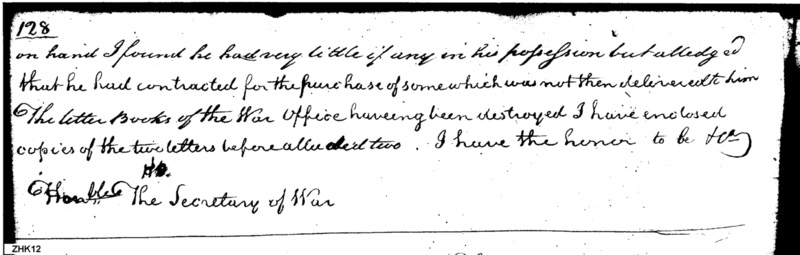 128
on hand I found he had very little if any in his possession but alledged
that he had contracted for the purchase of some which was not then delivered to him
The letter Books of the War Office haveing been destroyed I have enclosed
copies of the two letters before alluded two. I have the honor to be &c
Honble The Secretary of War
ZHK12